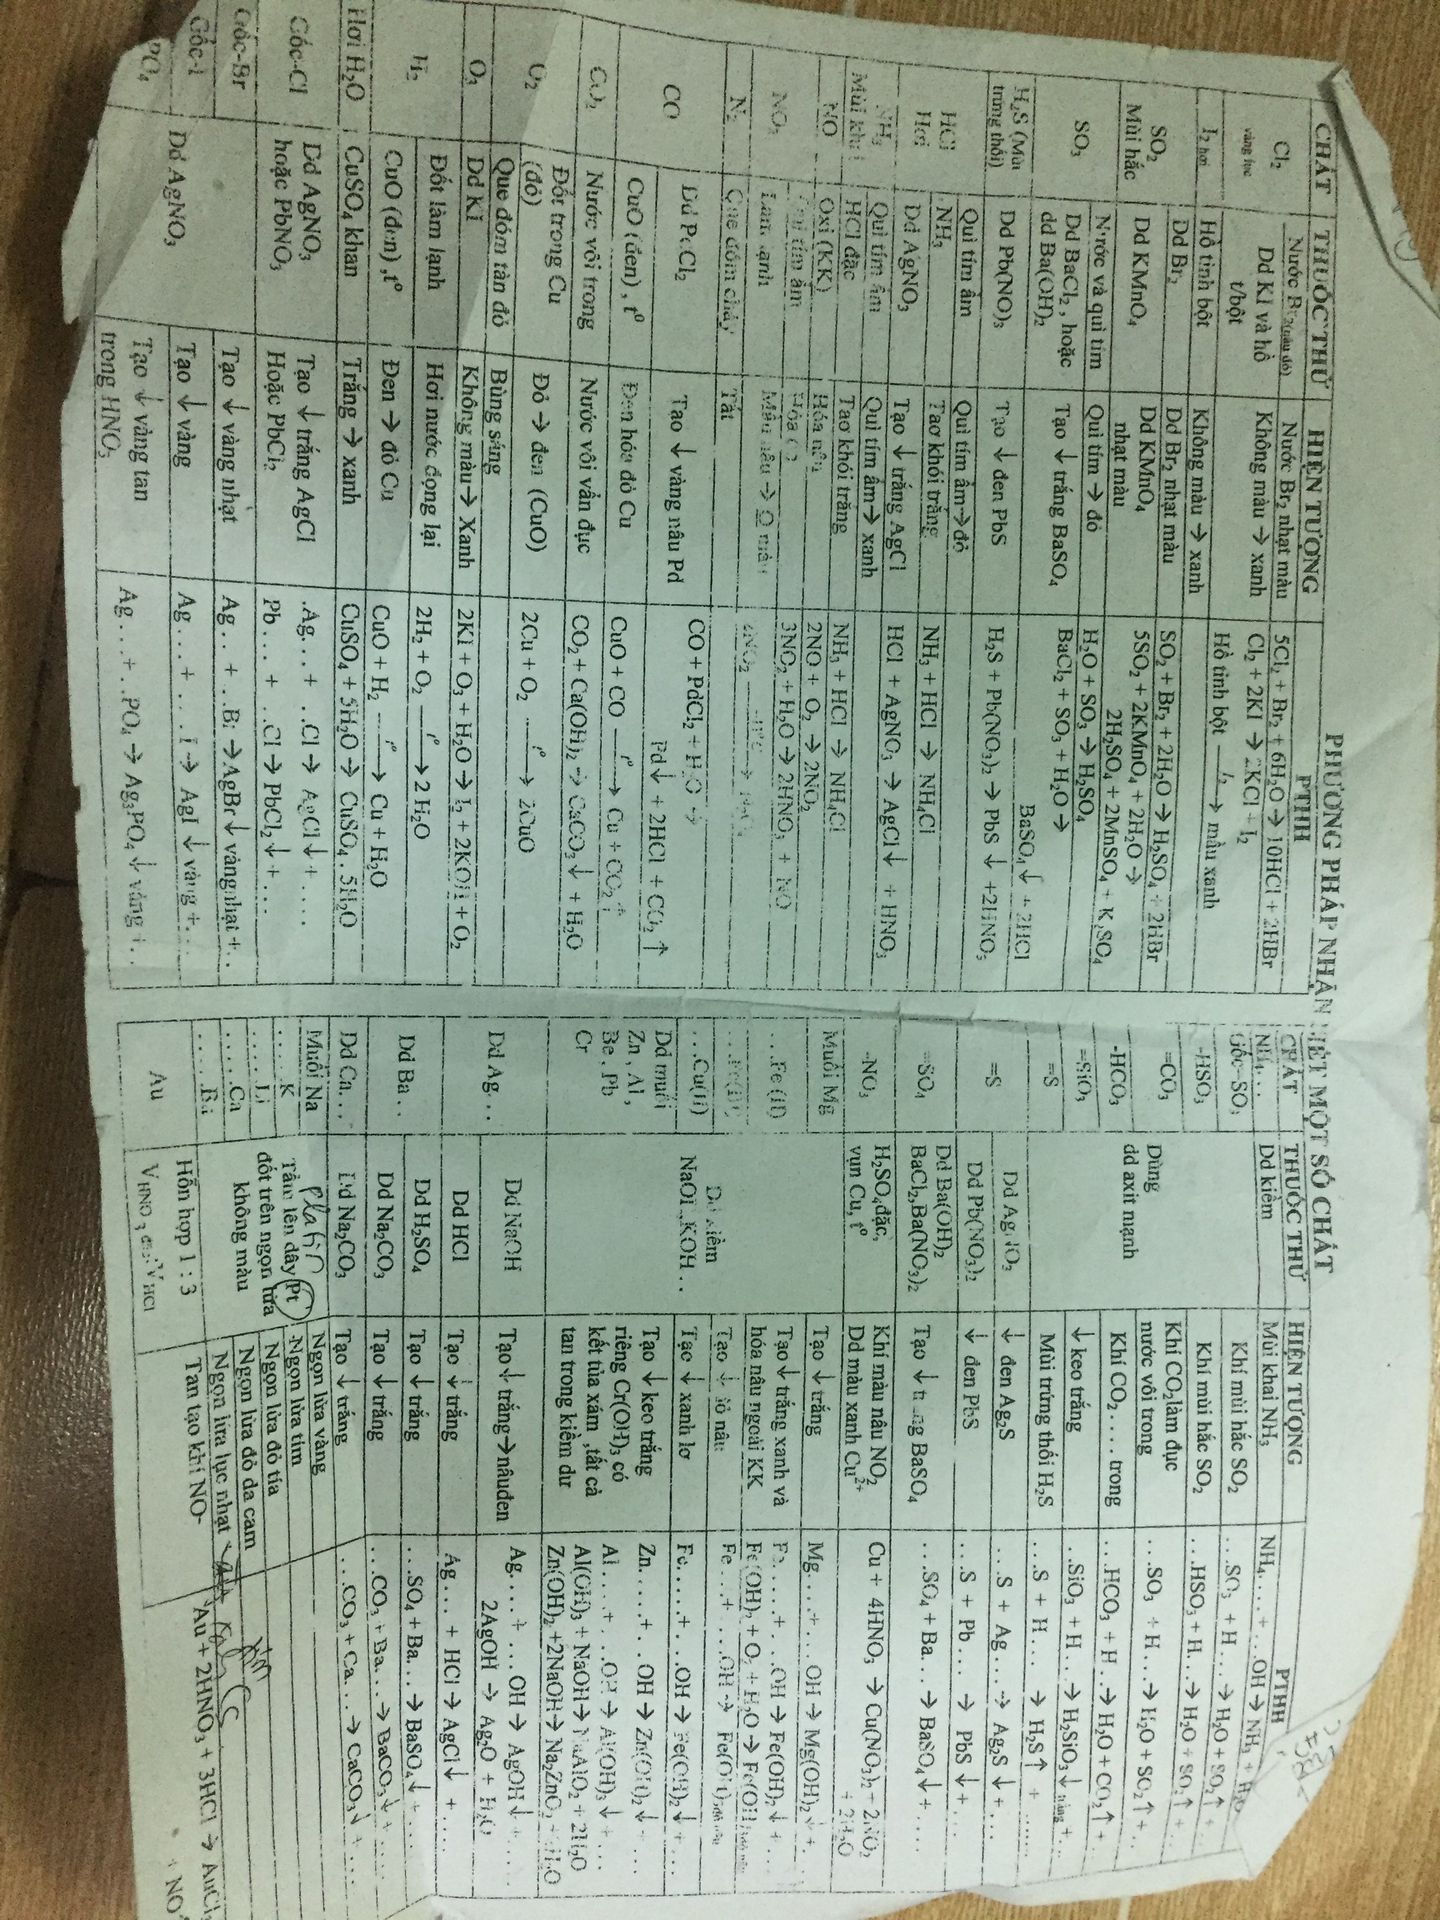 PHƯƠNG PHÁP NHẬN BIẾT MỘT SỐ CHẤT
CHẤT THUỐC THỬ HIỆN TƯỢNG PTHH
Cl₂ Nước Br₂(màu đỏ) Nước Br₂ nhạt màu 5Cl₂ + Br₂ + 6H₂O → 10HCl + 2HBr
vàng lục Dd KI và hồ t/bột Không màu → xanh Cl₂ + 2KI → 2KCl + I₂
I₂ hơi Hồ tinh bột Không màu → xanh Hồ tinh bột I₂→ màu xanh
SO₂ Dd Br₂ Dd Br₂ nhạt màu SO₂ + Br₂ + 2H₂O → H₂SO₄ + 2HBr
Mùi hắc Dd KMnO₄ Dd KMnO₄ nhạt màu 5SO₂ + 2KMnO₄ + 2H₂O →
2H₂SO₄ + 2MnSO₄ + K₂SO₄
SO₃ Nước và quì tím Quì tím → đỏ H₂O + SO₃ → H₂SO₄
Dd BaCl₂ , hoặc dd Ba(OH)₂ Tạo ↓ trắng BaSO₄ BaCl₂ + SO₃ + H₂O →
BaSO₄↓ + 2HCl
H₂S (Mùi trứng thối) Dd Pb(NO)₃ Tạo ↓ đen PbS H₂S + Pb(NO₃)₂ → PbS ↓ +2HNO₃
HCl Quì tím ẩm Quì tím ẩm→ đỏ
Hơi NH₃ Tạo khói trắng NH₃ + HCl → NH₄Cl
Dd AgNO₃ Tạo ↓ trắng AgCl HCl + AgNO₃ → AgCl↓ + HNO₃
NH₃ Quì tím ẩm Quì tím ẩm→ xanh
Mùi khai HCl đặc Tạo khói trắng NH₃ + HCl → NH₄Cl
NO Oxi (KK) Hóa nâu 2NO + O₂ → 2NO₂
NO₂ Quì tím ẩm Hóa 3NO₂ + H₂O → 2HNO₃ + NO
Làm lạnh Màu nâu → màu
N₂ Que đóm cháy Tắt
CO Dd PdCl₂ Tạo ↓ vàng nâu Pd CO + PdCl₂ + H₂O →
Pd↓ + 2HCl + CO₂ ↑
CuO (đen) , t⁰ Đen hóa đỏ Cu CuO + CO t⁰→ Cu + CO₂ ↑
CO₂ Nước vôi trong Nước vôi vẩn đục CO₂ + Ca(OH)₂ → CaCO₃↓ + H₂O
O₂ Đốt trong Cu (đỏ) Đỏ → đen (CuO) 2Cu + O₂ t⁰→ 2CuO
Que đóm tàn đỏ Bùng sáng
O₃ Dd KI Không màu→ Xanh 2KI + O₃ + H₂O → I₂ + 2KOH + O₂
H₂ Đốt làm lạnh Hơi nước đọng lại 2H₂ + O₂ t⁰→ 2 H₂O
CuO (đen) ,t⁰ Đen → đỏ Cu CuO + H₂ t⁰→ Cu + H₂O
Hơi H₂O CuSO₄ khan Trắng → xanh CuSO₄ + 5H₂O → CuSO₄ . 5H₂O
Gốc-Cl Dd AgNO₃ Tạo ↓ trắng AgCl .Ag. . . + . .Cl → AgCl↓ + . . . .
hoặc PbNO₃ Hoặc PbCl₂ Pb. . . + . .Cl → PbCl₂↓ + . . .
Gốc-Br Dd AgNO₃ Tạo ↓ vàng nhạt Ag. . + . .Br →AgBr↓ vàng nhạt + . .
Gốc-I Tạo ↓ vàng Ag. . . + . . . I → AgI ↓ vàng + . . .
PO₄ Tạo ↓ vàng tan trong HNO₃ Ag. . . + . . PO₄ → Ag₃PO₄ ↓ vàng + . .
CHẤT THUỐC THỬ HIỆN TƯỢNG PTHH
NH₄. . . Dd kiềm Mùi khai NH₃ NH₄. . . . + . . . OH → NH₃ + H₂O
Gốc=SO₃ Dùng dd axit mạnh Khí mùi hắc SO₂ . . .SO₃ + H . . . → H₂O + SO₂↑ + . .
-HSO₃ Khí mùi hắc SO₂ . . . .HSO₃ + H. . . → H₂O + SO₂↑ + . .
=CO₃ Khí CO₂làm đục nước vôi trong . . .SO₃ + H . . . . → H₂O + SO₂↑ + . . .
-HCO₃ Khí CO₂ . . . . trong . . . .HCO₃ + H . . → H₂O + CO₂↑ + . .
=SiO₃ ↓ keo trắng . . .SiO₃ + H . . . → H₂SiO₃↓ trắng + . .
=S Mùi trứng thối H₂S . . . .S + H . . . → H₂S↑ + . . . . . .
=S Dd AgNO₃ ↓ đen Ag₂S . . . .S + Ag. . . → Ag₂S ↓ + . . .
Dd Pb(NO₃)₂ ↓ đen PbS . . . .S + Pb. . . → PbS ↓ + . . .
=SO₄ Dd Ba(OH)₂ BaCl₂,Ba(NO₃)₂ Tạo ↓ trắng BaSO₄ . . . .SO₄ + Ba . . → BaSO₄↓ + . .
-NO₃ H₂SO₄đặc, vụn Cu, t⁰ Khí màu nâu NO₂ Dd màu xanh Cu²⁺ Cu + 4HNO₃ → Cu(NO₃)₂ + 2NO₂ + 2H₂O
Muối Mg Dd kiềm NaOH ,KOH . . Tạo ↓ trắng Mg. . . . + . . OH → Mg(OH)₂↓ + .
. . .Fe (II) Tạo↓ trắng xanh và hóa nâu ngoài KK Fe. . . . . + . . .OH → Fe(OH)₂↓ + . .
Fe(OH)₂ + O₂ + H₂O → Fe(OH)
Tạo ↓ đỏ nâu Fe . . . + . . . .OH → Fe(OH)₃
. . .Cu(II) Tạo ↓ xanh lơ Fe. . . . . + . . .OH → Fe(OH)₂↓ + . . .
Dd muối Zn , Al , Be , Pb Cr Tạo ↓ keo trắng Zn. . . . . + . . OH → Zn(OH)₂ ↓ + . . .
riêng Cr(OH)₃ có Al . . . . . + . . .OH → Al(OH)₃ ↓ + . . .
kết tủa xám ,tất cả Al(OH)₃ + NaOH→ NaAlO₂ + 2H₂O
tan trong kiềm dư Zn(OH)₂ +2NaOH→ Na₂ZnO₂ + H₂O
Dd Ag. . . Dd NaOH Tạo↓ trắng→nâuđen Ag. . . . + . . . . OH → AgOH↓ + . . .
2AgOH → Ag₂O + H₂O
Dd HCl Tạo ↓ trắng Ag. . . . + HCl → AgCl↓ + . . . .
Dd Ba . . Dd H₂SO₄ Tạo ↓ trắng . . .SO₄ + Ba. . . → BaSO₄↓ + . . . .
Dd Na₂CO₃ Tạo ↓ trắng . . . .CO₃ + Ba. . . → BaCO₃↓ + . . . .
Dd Ca. . . Dd Na₂CO₃ Tạo ↓ trắng . . . .CO₃ + Ca. . . → CaCO₃↓ + . . .
Muối Na platin Ngọn lửa vàng
. . . . . K Tẩm lên dây Pt Ngọn lửa tím
. . . . . Li đốt trên ngọn lửa Ngọn lửa đỏ tía
. . . . . Ca không màu Ngọn lửa đỏ da cam
. . . . . Ba Ngọn lửa lục nhạt
Au Hỗn hợp 1 : 3 Tan tạo khí NO Au + 2HNO₃ + 3HCl → AuCl₃
V HNO₃ V HCl + NO